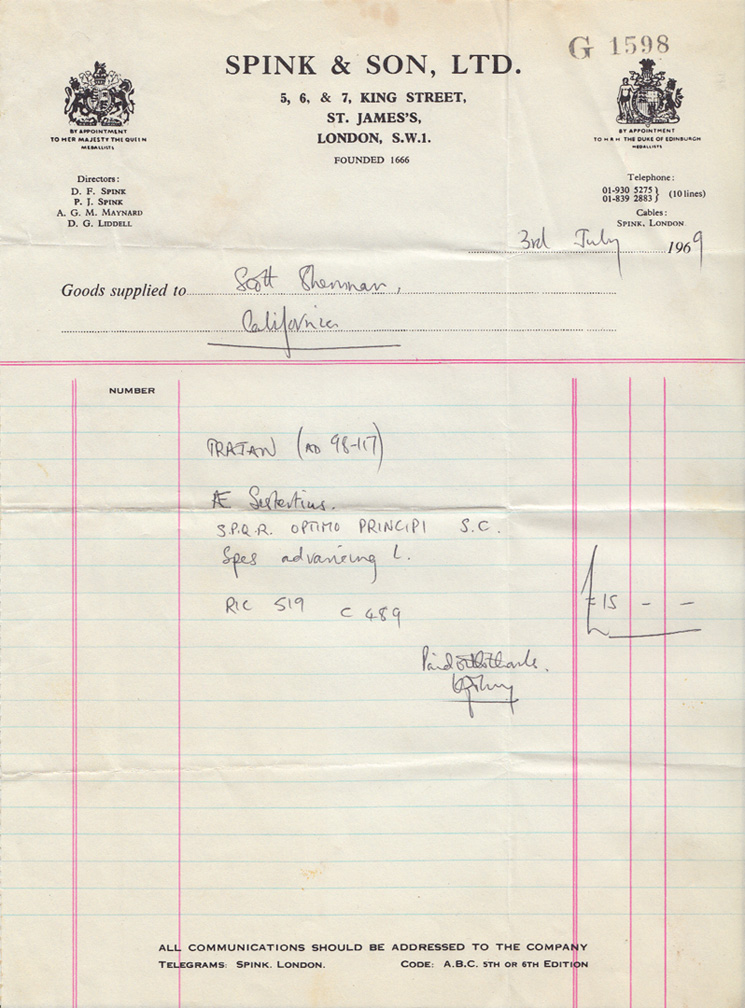 G 1598
SPINK & SON, LTD.
5, 6, & 7, KING STREET,
ST. JAMES'S,
LONDON, S.W.1.
FOUNDED 1666
BY APPOINTMENT
TO HER MAJESTY THE QUEEN
MEDALLISTS
BY APPOINTMENT
TO H R H THE DUKE OF EDINBURGH
MEDALLISTS
Directors:
D. F. SPINK
P. J. SPINK
A. G. M. MAYNARD
D. G. LIDDELL
Telephone:
01-930 5275 } (10 lines)
01-839 2883 }
Cables:
SPINK, LONDON
3rd July 1969
Goods supplied to Scott Sherman,
California
NUMBER
TRAJAN (AD 98-117)
Æ Sestertius.
S.P.Q.R. OPTIMO PRINCIPI S.C.
Spes advancing L.
RIC 519 C 489
£15 - -
Paid with thanks.
ALL COMMUNICATIONS SHOULD BE ADDRESSED TO THE COMPANY
TELEGRAMS: SPINK. LONDON. CODE: A.B.C. 5TH OR 6TH EDITION